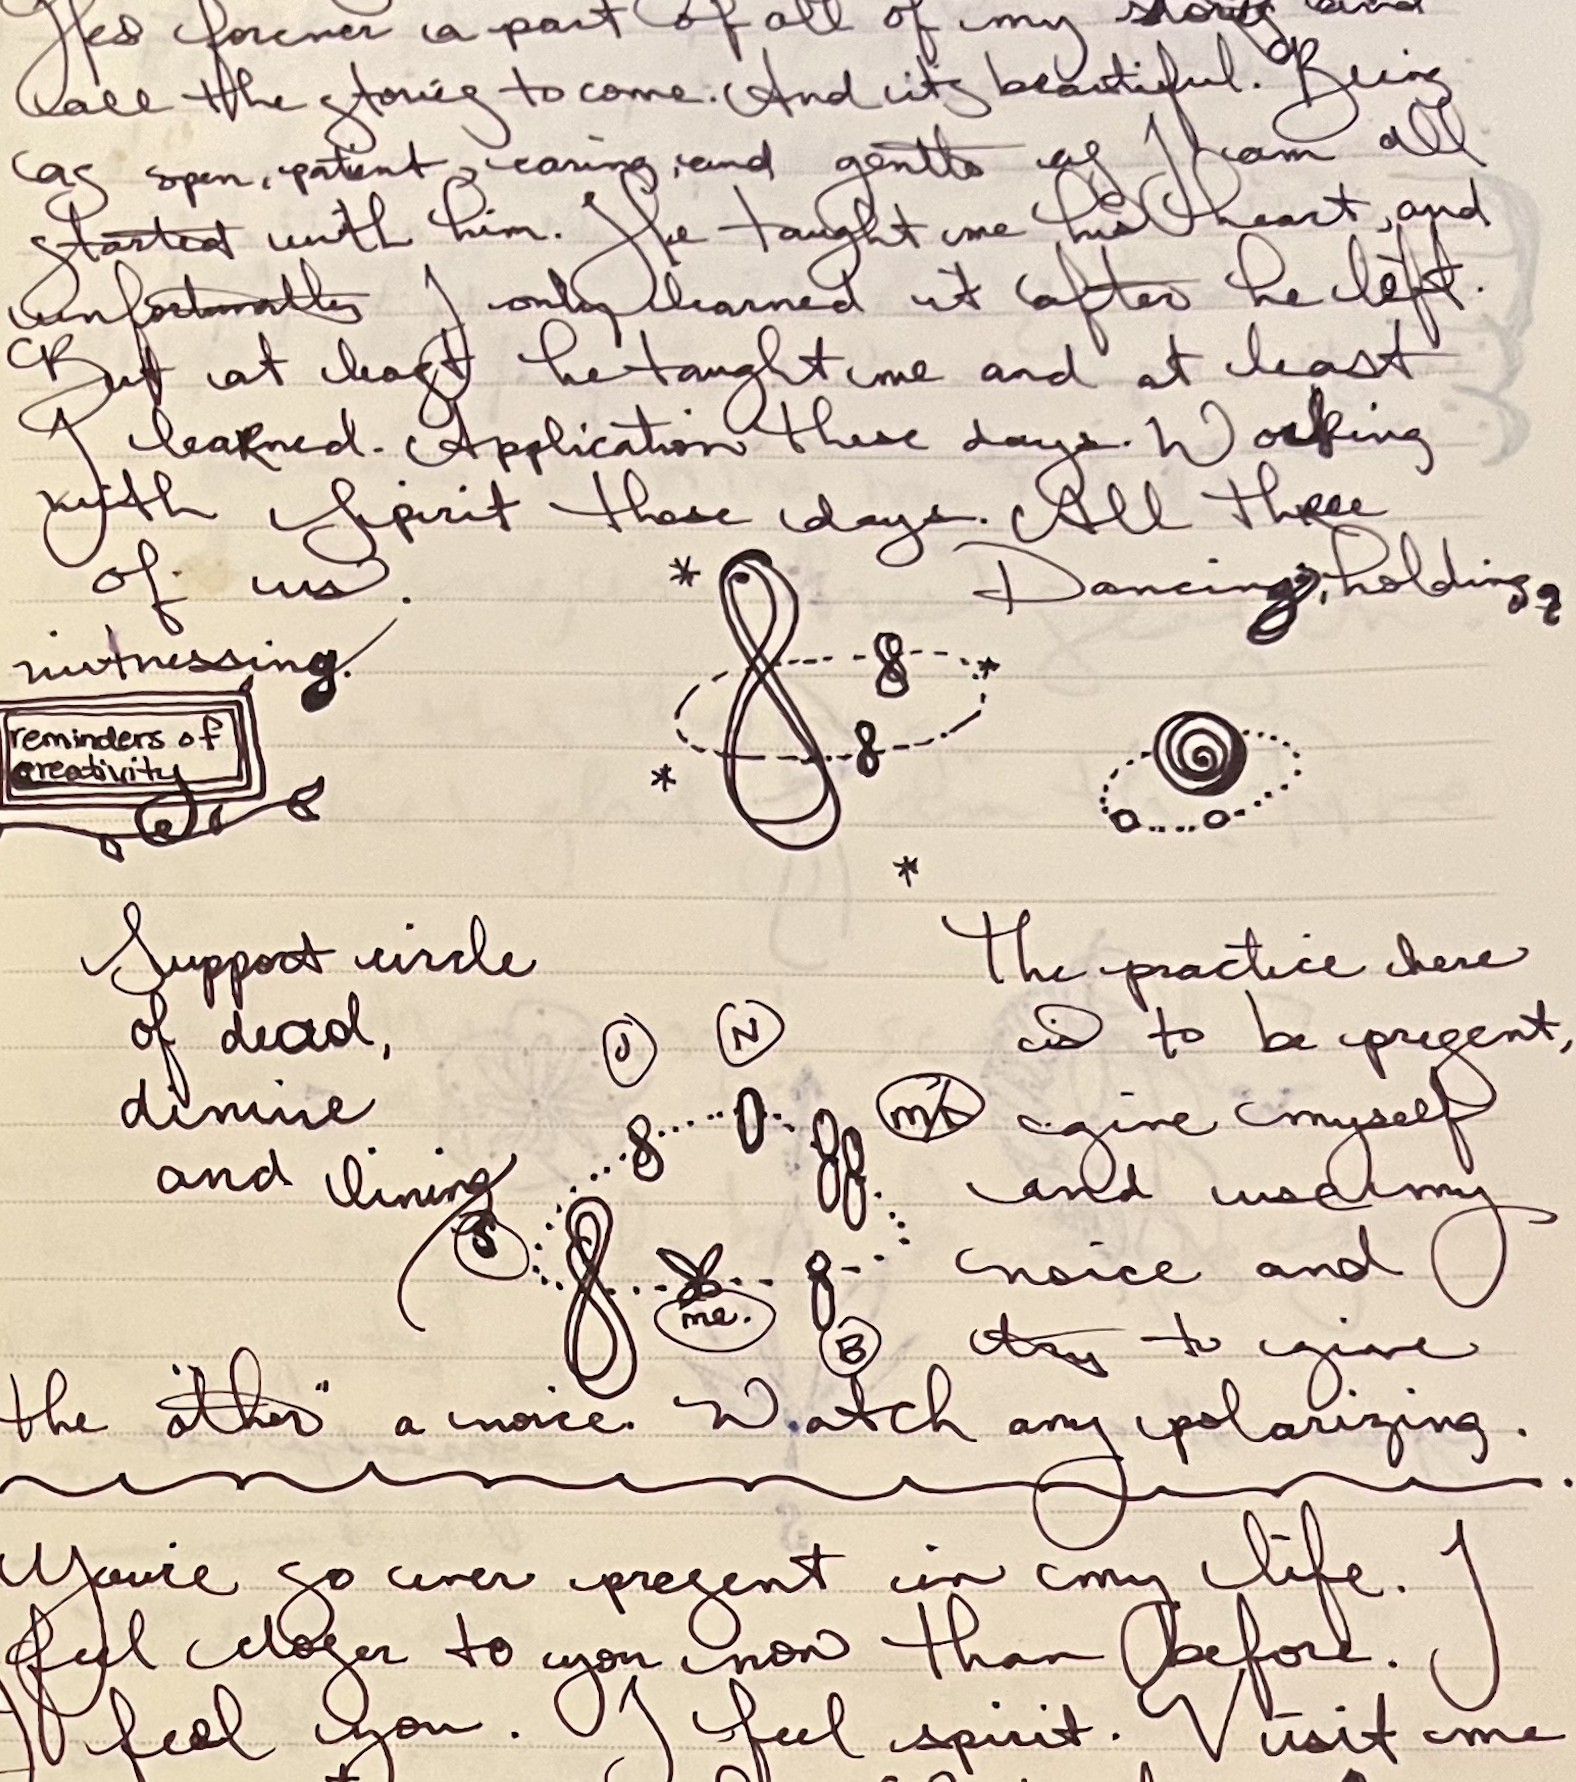 He's forever a part of all of my story and
all the stories to come. And it's beautiful. Being
as open, patient, caring, and gentle as I am all
started with him. He taught me his heart, and
unfortunately I only learned it after he left.
But at least he taught me and at least
I learned. Application these days. Working
with Spirit these days. All three
of us. Dancing, holding,
witnessing.
reminders of
creativity
Support circle
of dead,
divine
and living
J
N
S
me.
B
The practice here
is to be present,
give myself
and use my
voice and
try to give
the "other" a voice. Watch any polarizing.
You're so ever present in my life. I
feel closer to you now than before. I
feel you. I feel spirit. Visit me